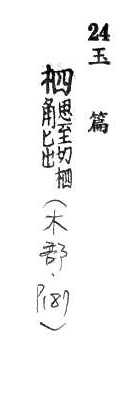 24 玉篇
柶 思至切柶角匕也（木部·P187）